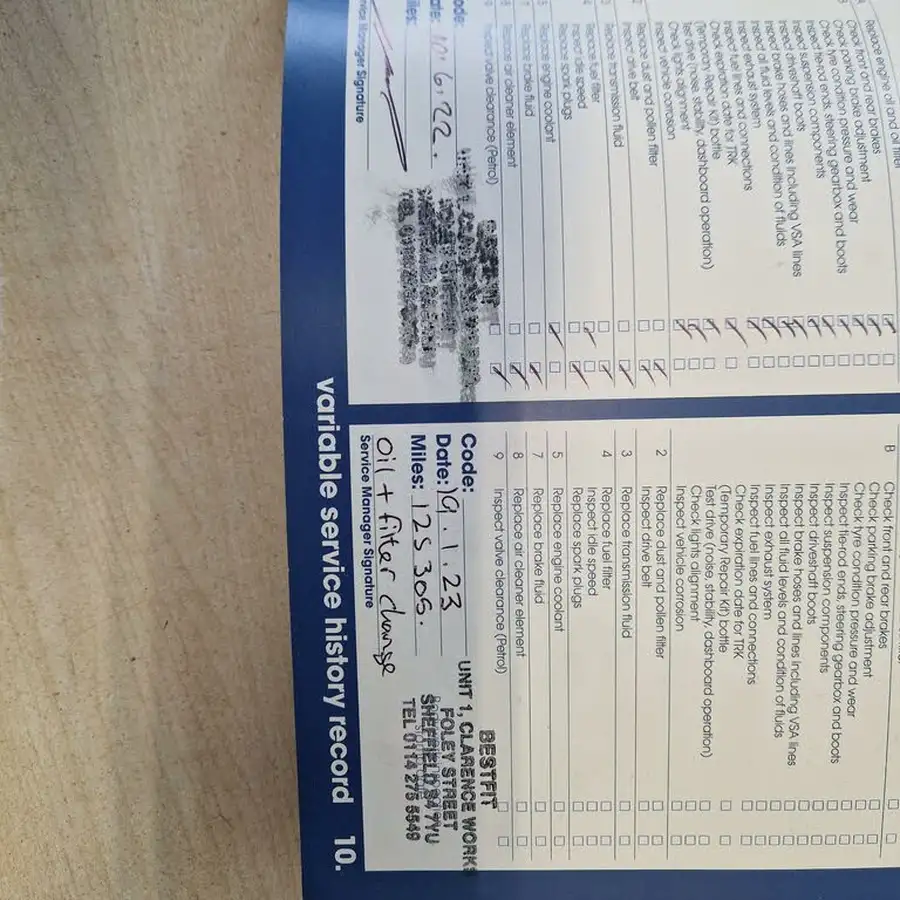 Replace engine oil and oil filter
Check front and rear brakes
Check parking brake adjustment
Check tyre condition pressure and wear
Inspect tie-rod ends, steering gearbox and boots
Inspect suspension components
Inspect driveshaft boots
Inspect brake hoses and lines including VSA lines
Inspect all fluid levels and condition of fluids
Inspect exhaust system
Inspect fuel lines and connections
Check expiration date for TRK
(Temporary Repair Kit) bottle
Test drive (noise, stability, dashboard operation)
Check lights alignment
Inspect vehicle corrosion
2 Replace dust and pollen filter
Inspect drive belt
3 Replace transmission fluid
4 Replace fuel filter
Inspect idle speed
Replace spark plugs
5 Replace engine coolant
7 Replace brake fluid
8 Replace air cleaner element
9 Inspect valve clearance (Petrol)
ode:
ate: 10.6.22.
iles:
Manager Signature
B Check front and rear brakes
Check parking brake adjustment
Check tyre condition pressure and wear
Inspect tie-rod ends, steering gearbox and boots
Inspect suspension components
Inspect driveshaft boots
Inspect brake hoses and lines including VSA lines
Inspect all fluid levels and condition of fluids
Inspect exhaust system
Inspect fuel lines and connections
Check expiration date for TRK
(Temporary Repair Kit) bottle
Test drive (noise, stability, dashboard operation)
Check lights alignment
Inspect vehicle corrosion
2 Replace dust and pollen filter
Inspect drive belt
3 Replace transmission fluid
4 Replace fuel filter
Inspect idle speed
Replace spark plugs
5 Replace engine coolant
7 Replace brake fluid
8 Replace air cleaner element
9 Inspect valve clearance (Petrol)
Code:
Date: 19.1.23
Miles: 125305.
oil + filter change
Service Manager Signature
BESTFIT
UNIT 1, CLARENCE WORKS
FOLEY STREET
SHEFFIELD S4 7YU
TEL 0114 275 5549
variable service history record 10.